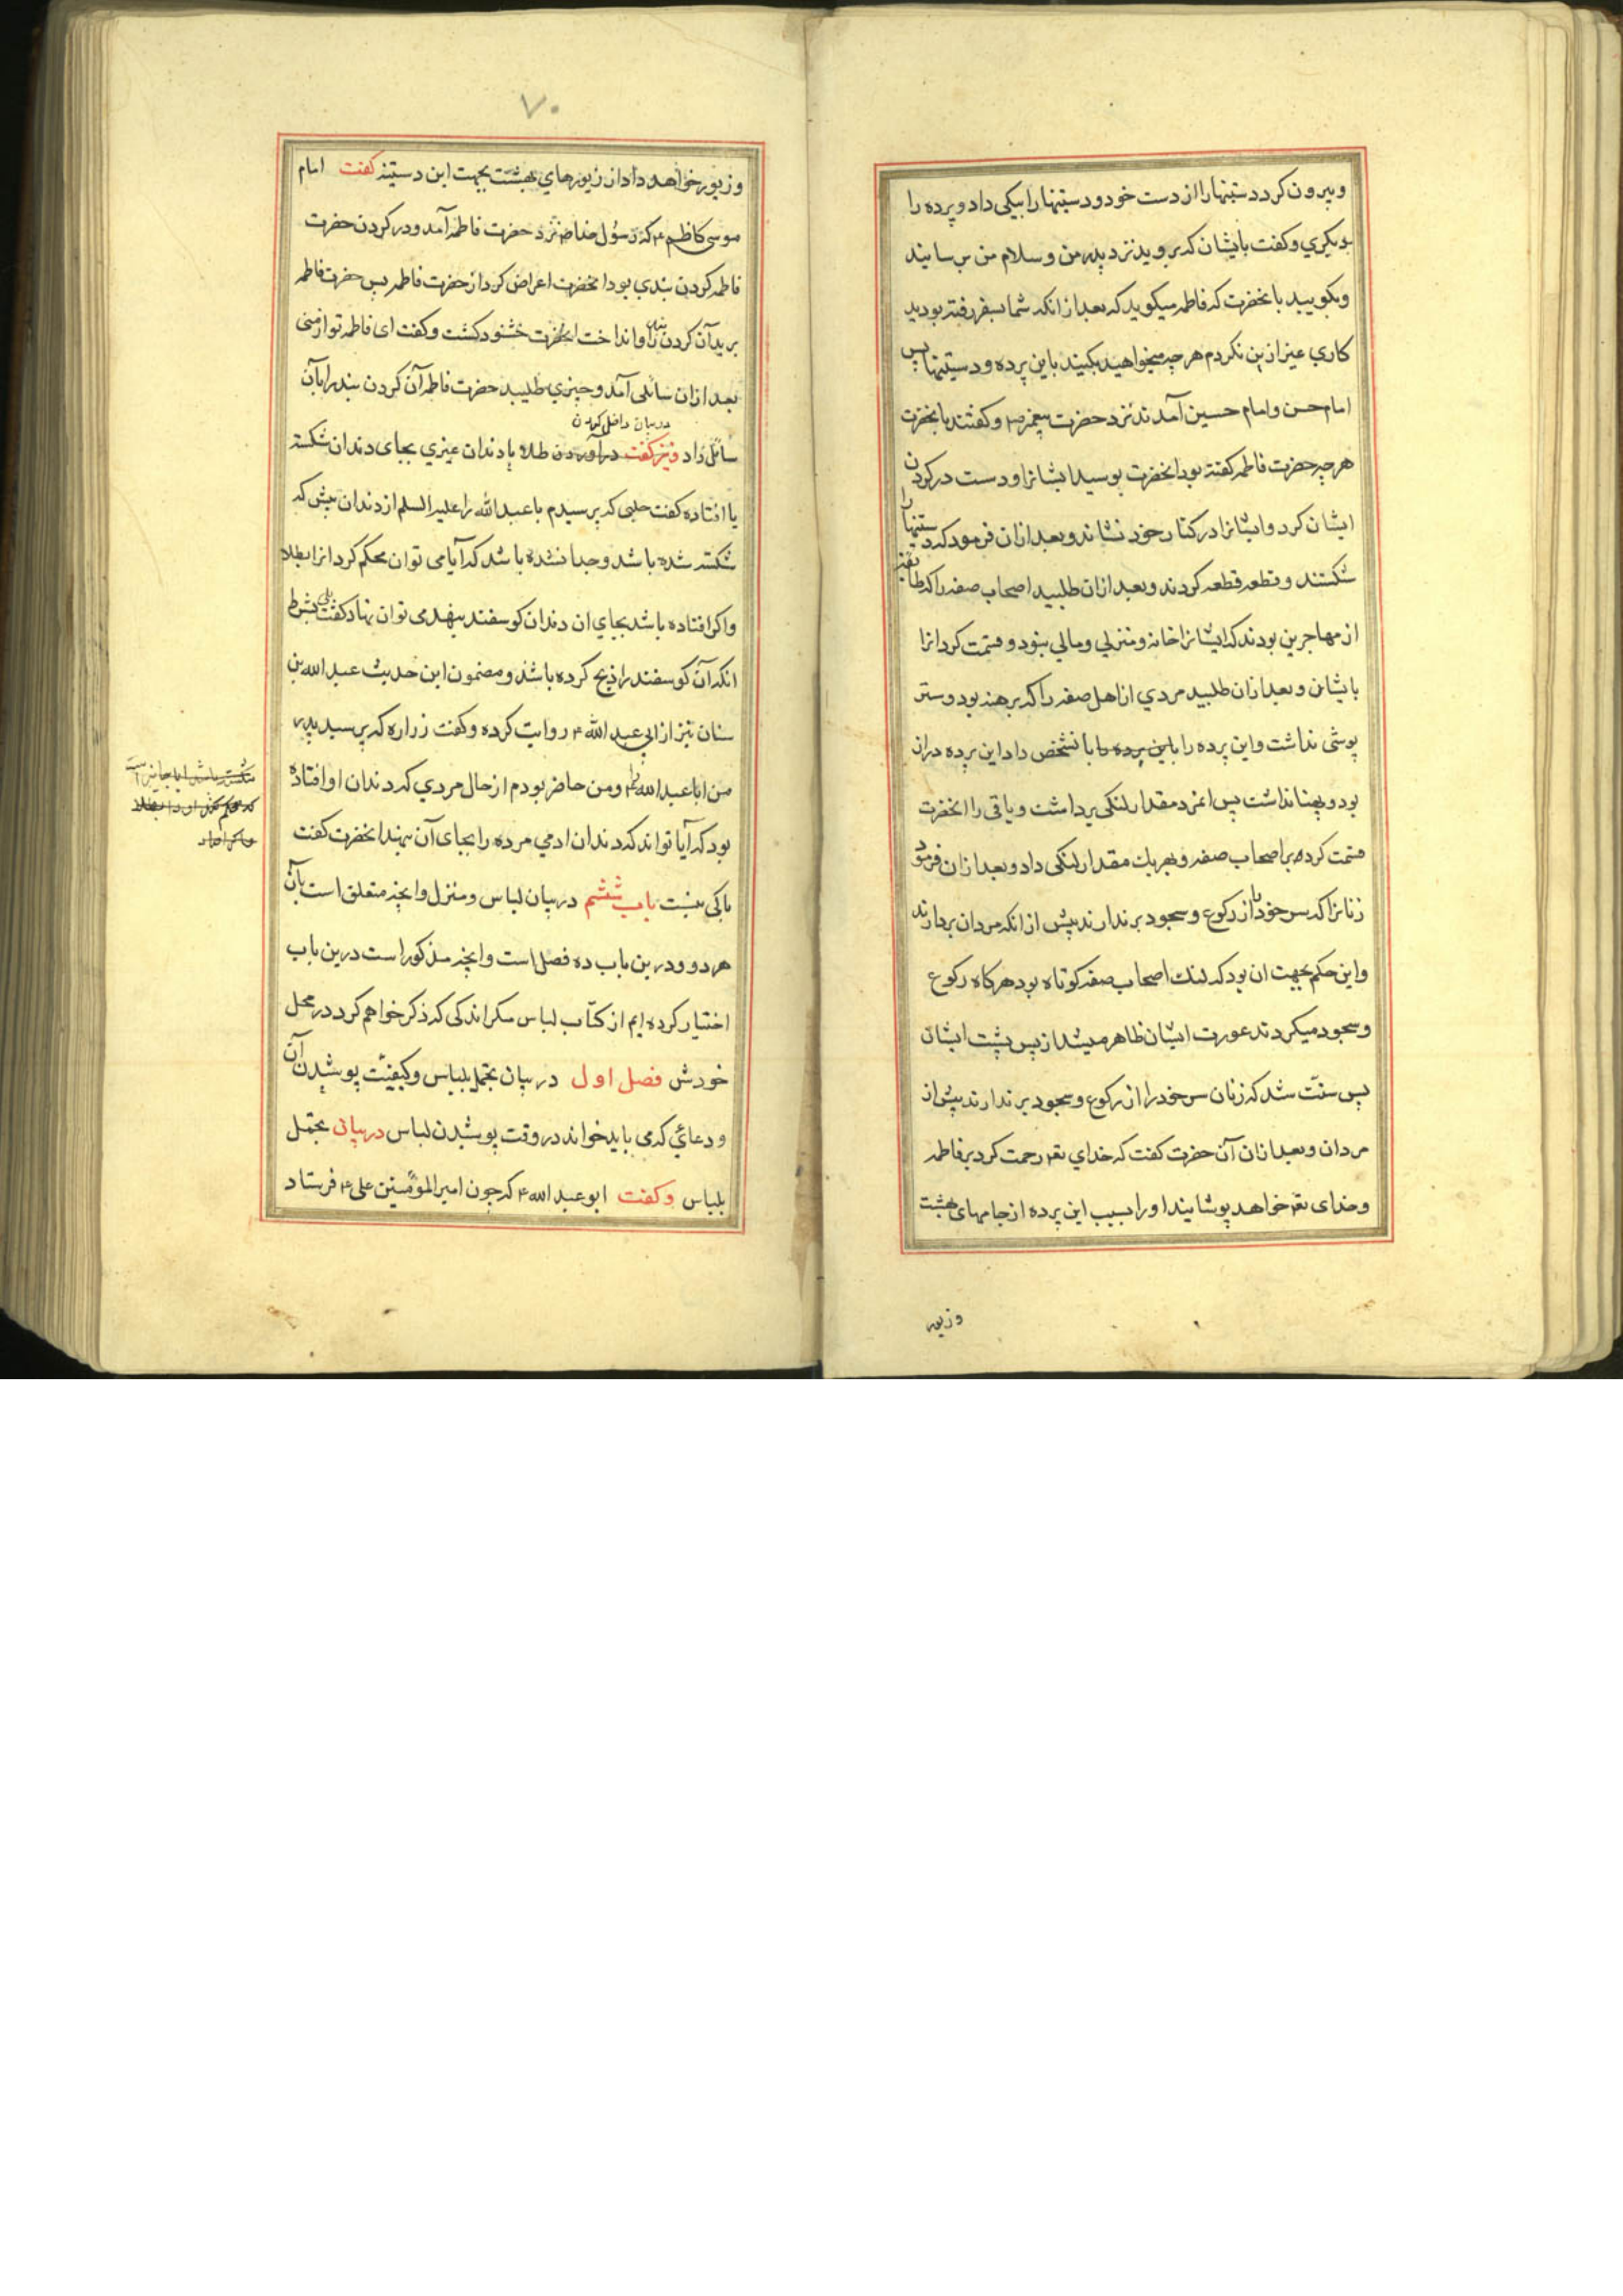 و بیرون کرد دستینها را از دست خود و دستینها را بیکی داد و پرده را
بدیکری و کفت بایشان که بروید نزد پدر من و سلام من برسانید
و بکویید بانحضرت که فاطمه میکوید که بعد از انکه شما بسفر رفته بودید
کاری غیر ازین نکردم هر چه میخواهید بکنید باین پرده و دستینها پس
امام حسن و امام حسین آمدند نزد حضرت پیغمبر ص و کفتند بانحضرت
هر چه حضرت فاطمه کفته بود انحضرت بوسید ایشانرا و دست در کردن
ایشان کرد و ایشانرا در کنار خود نشاند و بعد ازان فرمود که دستینها را
شکستند و قطعه قطعه کردند و بعد ازان طلبید اصحاب صفه را که طایفه
از مهاجرین بودند که ایشانرا خانه و منزلی و مالی نبود و قسمت کرد انرا
بایشان و بعد ازان طلبید مردی از اهل صفه را که برهنه بود و ستر
پوشی نداشت و این پرده را باین پرده را بانشخص داد این پرده دراز
بود و پهنا نداشت پس انمرد مقدار لنکی برداشت و باقی را انحضرت
قسمت کرده بر اصحاب صفه و بهر یک مقدار لنکی داد و بعد ازان فرمود
زنانرا که سر خود را از رکوع و سجود برندارند پیش از انکه مردان بردارند
و این حکم بجهت ان بود که لنک اصحاب صفه کوتاه بود هرکاه رکوع
و سجود میکردند عورت ایشان ظاهر میشد از پس پشت ایشان
پس سنت شد که زنان سر خود را از رکوع و سجود برندارند پیش از
مردان و بعد ازان آن حضرت کفت که خدای تعم رحمت کرد بر فاطمه
و خدای تعم خواهد پوشانید او را بسبب این پرده از جامهای بهشت
و زیور
۷۰
و زیور خواهد داد از زیورهای بهشت بجهت این دستینه کفت امام
موسی کاظم ع که رسول خدا ص نزد حضرت فاطمه آمد و در کردن حضرت
فاطمه کردن بندی بود انحضرت اعراض کرد از حضرت فاطمه پس حضرت فاطمه
برید آن کردن بند را و انداخت انحضرت خشنود کشت و کفت ای فاطمه تو از منی
بعد ازان سائلی آمد و چیزی طلبید حضرت فاطمه آن کردن بند را بآن
در بیان داخل کردن
سائل داد و نیز کفت در آوردن طلا یا دندان غیری بجای دندان شکسته
یا افتاده کفت حلبی که پرسیدم با عبد الله را علیه السلم از دندان پیش که
شکسته شده باشد و جدا نشده باشد که آیا می توان محکم کرد انرا بطلا
و اکر افتاده باشد بجای ان دندان کوسفند بنهد می توان نهاد کفت بلی بشرط
انکه آن کوسفند را ذبح کرده باشد و مضمون این حدیث عبد الله بن
سنان نیز از ابی عبد الله ع روایت کرده و کفت زراره که پرسید پدر
من ابا عبد الله را ع و من حاضر بودم از حال مردی که دندان او افتاده
بود که آیا تواند که دندان ادمی مرده را بجای آن نهد انحضرت کفت
باکی نیست باب ششم در بیان لباس و منزل و انچه متعلق است بآن
هر دو و درین باب ده فصل است و انچه مذکور است درین باب
اختیار کرده ایم از کتاب لباس مکر اندکی که ذکر خواهم کرد در محل
خودش فصل اول در بیان تجمل بلباس و کیفیت پوشیدن آن
و دعائی که می باید خواند در وقت پوشیدن لباس در بیان تجمل
بلباس و کفت ابو عبد الله ع که چون امیر المؤمنین علی ع فرستاد
شکسته باشد ایا جایز است
که محکم کند او را بطلا